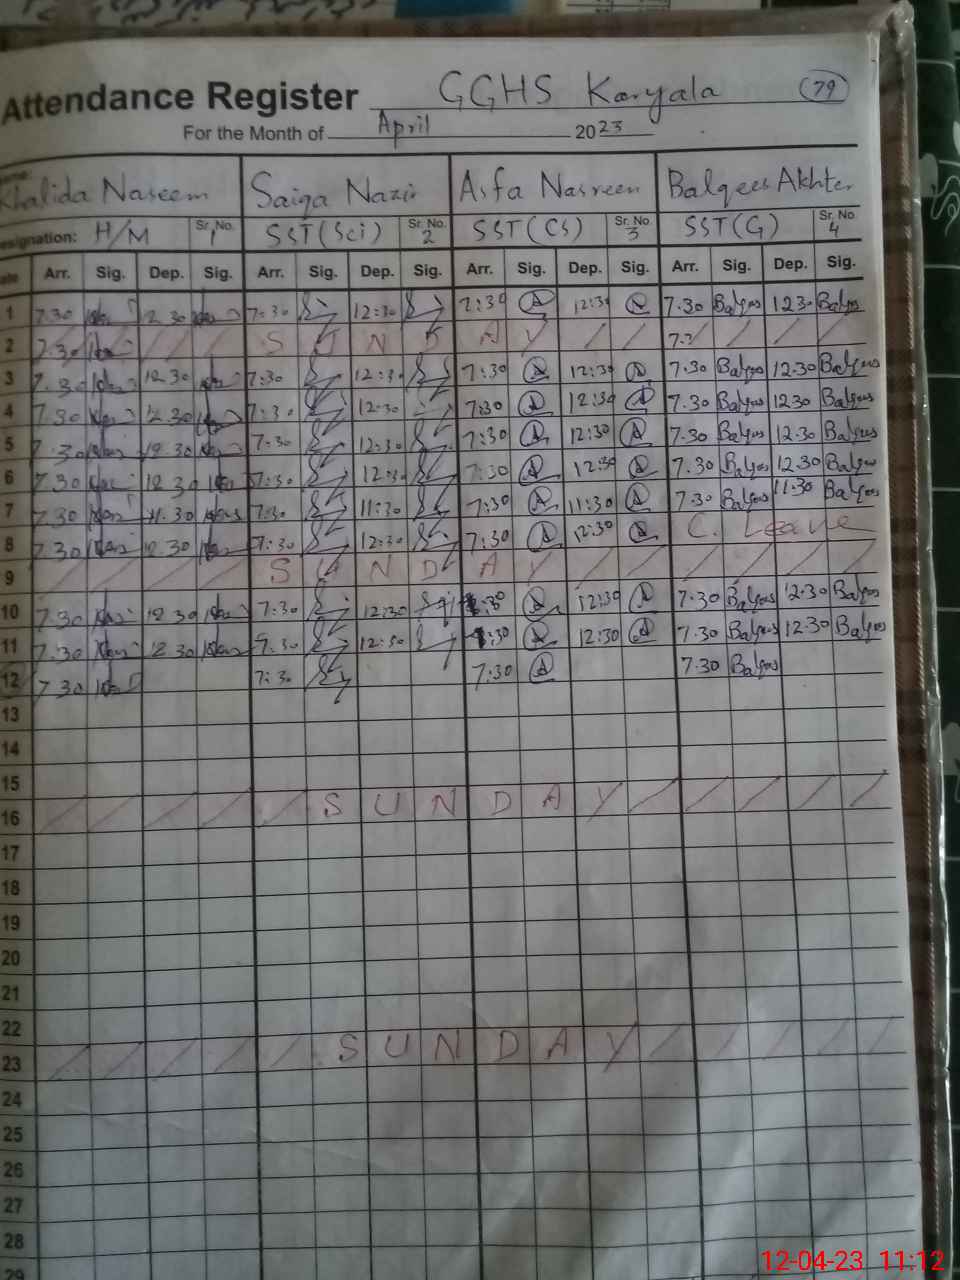 Attendance Register GGHS Karyala 79
For the Month of April 2023
Khalida Naseem Saiqa Nazir Asfa Nasreen Balqees Akhter
esignation: H/M Sr. No. 1 SST (Sci) Sr. No. 2 SST (CS) Sr. No. 3 SST (G) Sr. No. 4
ate Arr. Sig. Dep. Sig. Arr. Sig. Dep. Sig. Arr. Sig. Dep. Sig. Arr. Sig. Dep. Sig.
1 7.30 12.30 7:30 12:30 7:30 12:30 7.30 Balqees 12.30 Balqees
2 7.30 S U N D A Y 7.3
3 7.30 12.30 7:30 12:30 7:30 12:30 7.30 Balqees 12.30 Balqees
4 7.30 12.30 7:30 12:30 7:30 12:30 7.30 Balqees 12.30 Balqees
5 7.30 12.30 7:30 12:30 7:30 12:30 7.30 Balqees 12.30 Balqees
6 7.30 12.30 7:30 12:30 7:30 12:30 7.30 Balqees 12.30 Balqees
7 7.30 11.30 7:30 11:30 7:30 11:30 7.30 Balqees 11.30 Balqees
8 7.30 12.30 7:30 12:30 7:30 12:30 C. Leave
9 S U N D A Y
10 7.30 12.30 7:30 12:30 7:30 12:30 7.30 Balqees 12.30 Balqees
11 7.30 12.30 7:30 12:30 7:30 12:30 7.30 Balqees 12.30 Balqees
12 7.30 7:30 7:30 7.30 Balqees
13
14
15
16 S U N D A Y
17
18
19
20
21
22
23 S U N D A Y
24
25
26
27
28
29
12-04-23 11:12